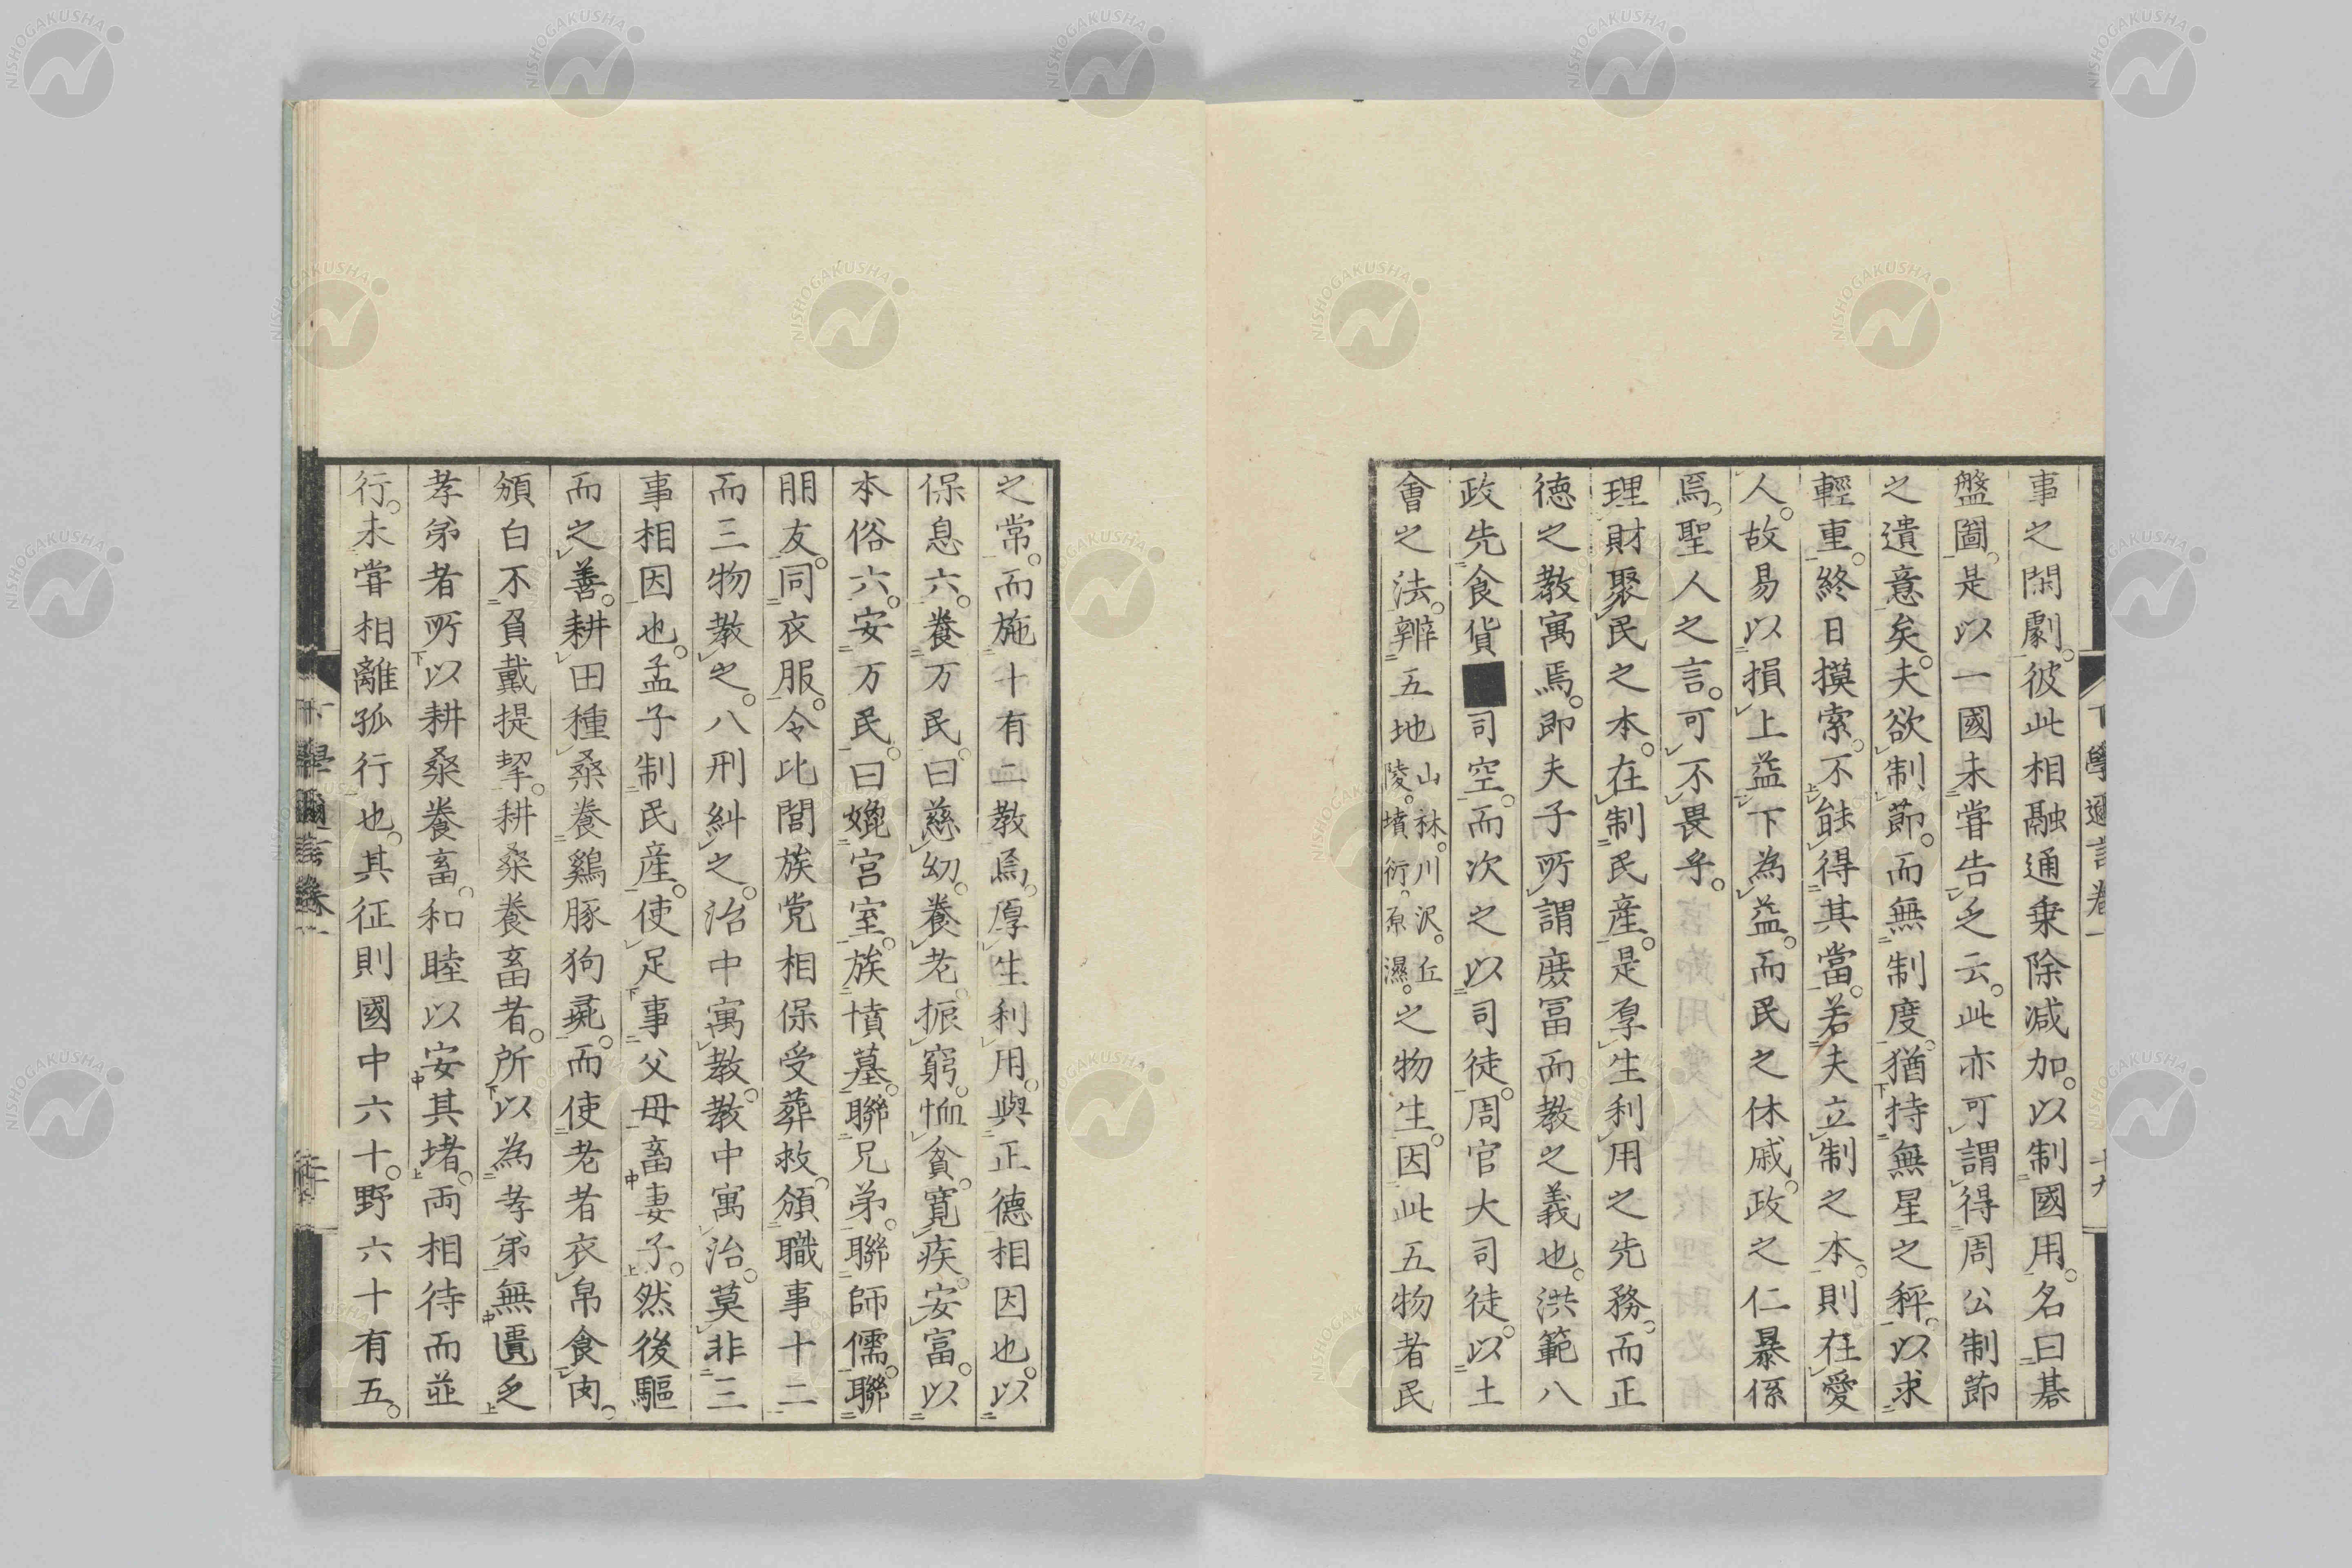 事之閑劇。彼此相融通乗除減加。以制國用。名曰碁
盤圖。是以一國未嘗告乏云。此亦可謂得周公制節
之遺意矣。夫欲制節。而無制度。猶持無星之秤。以求
輕重。終日摸索。不能得其當。若夫立制之本。則在愛
人。故易以損上益下為益。而民之休戚。政之仁暴係
焉。聖人之言。可不畏乎。
理財聚民之本。在制民産。是厚生利用之先務。而正
徳之教寓焉。即夫子所謂庶冨而教之義也。洪範八
政先食貨■司空。而次之以司徒。周官大司徒。以土
會之法。辨五地山林。川沢。丘陵。墳衍。原濕。之物生。因此五物者民
下學邇言卷一
十九
之常。而施十有二教焉。厚生利用。與正德相因也。以
保息六。養万民。曰慈幼。養老。振窮。恤貧。寛疾。安富。以
本俗六。安万民。曰媺宮室。族憤墓。聯兄弟。聯師儒。聯
朋友。同衣服。令比閭族党相保受葬救。頒職事十二
而三物教之。八刑糾之。治中寓教。教中寓治。莫非三
事相因也。孟子制民産。使足事父母畜妻子。然後驅
而之善。耕田種桑養鷄豚狗彘。而使老者衣帛食肉。
頒白不負戴提挈。耕桑養畜者。所以為孝弟無匱乏
孝弟者所以耕桑養畜。和睦以安其堵。両相待而並
行。未嘗相離孤行也。其征則國中六十。野六十有五。
下學邇言卷一